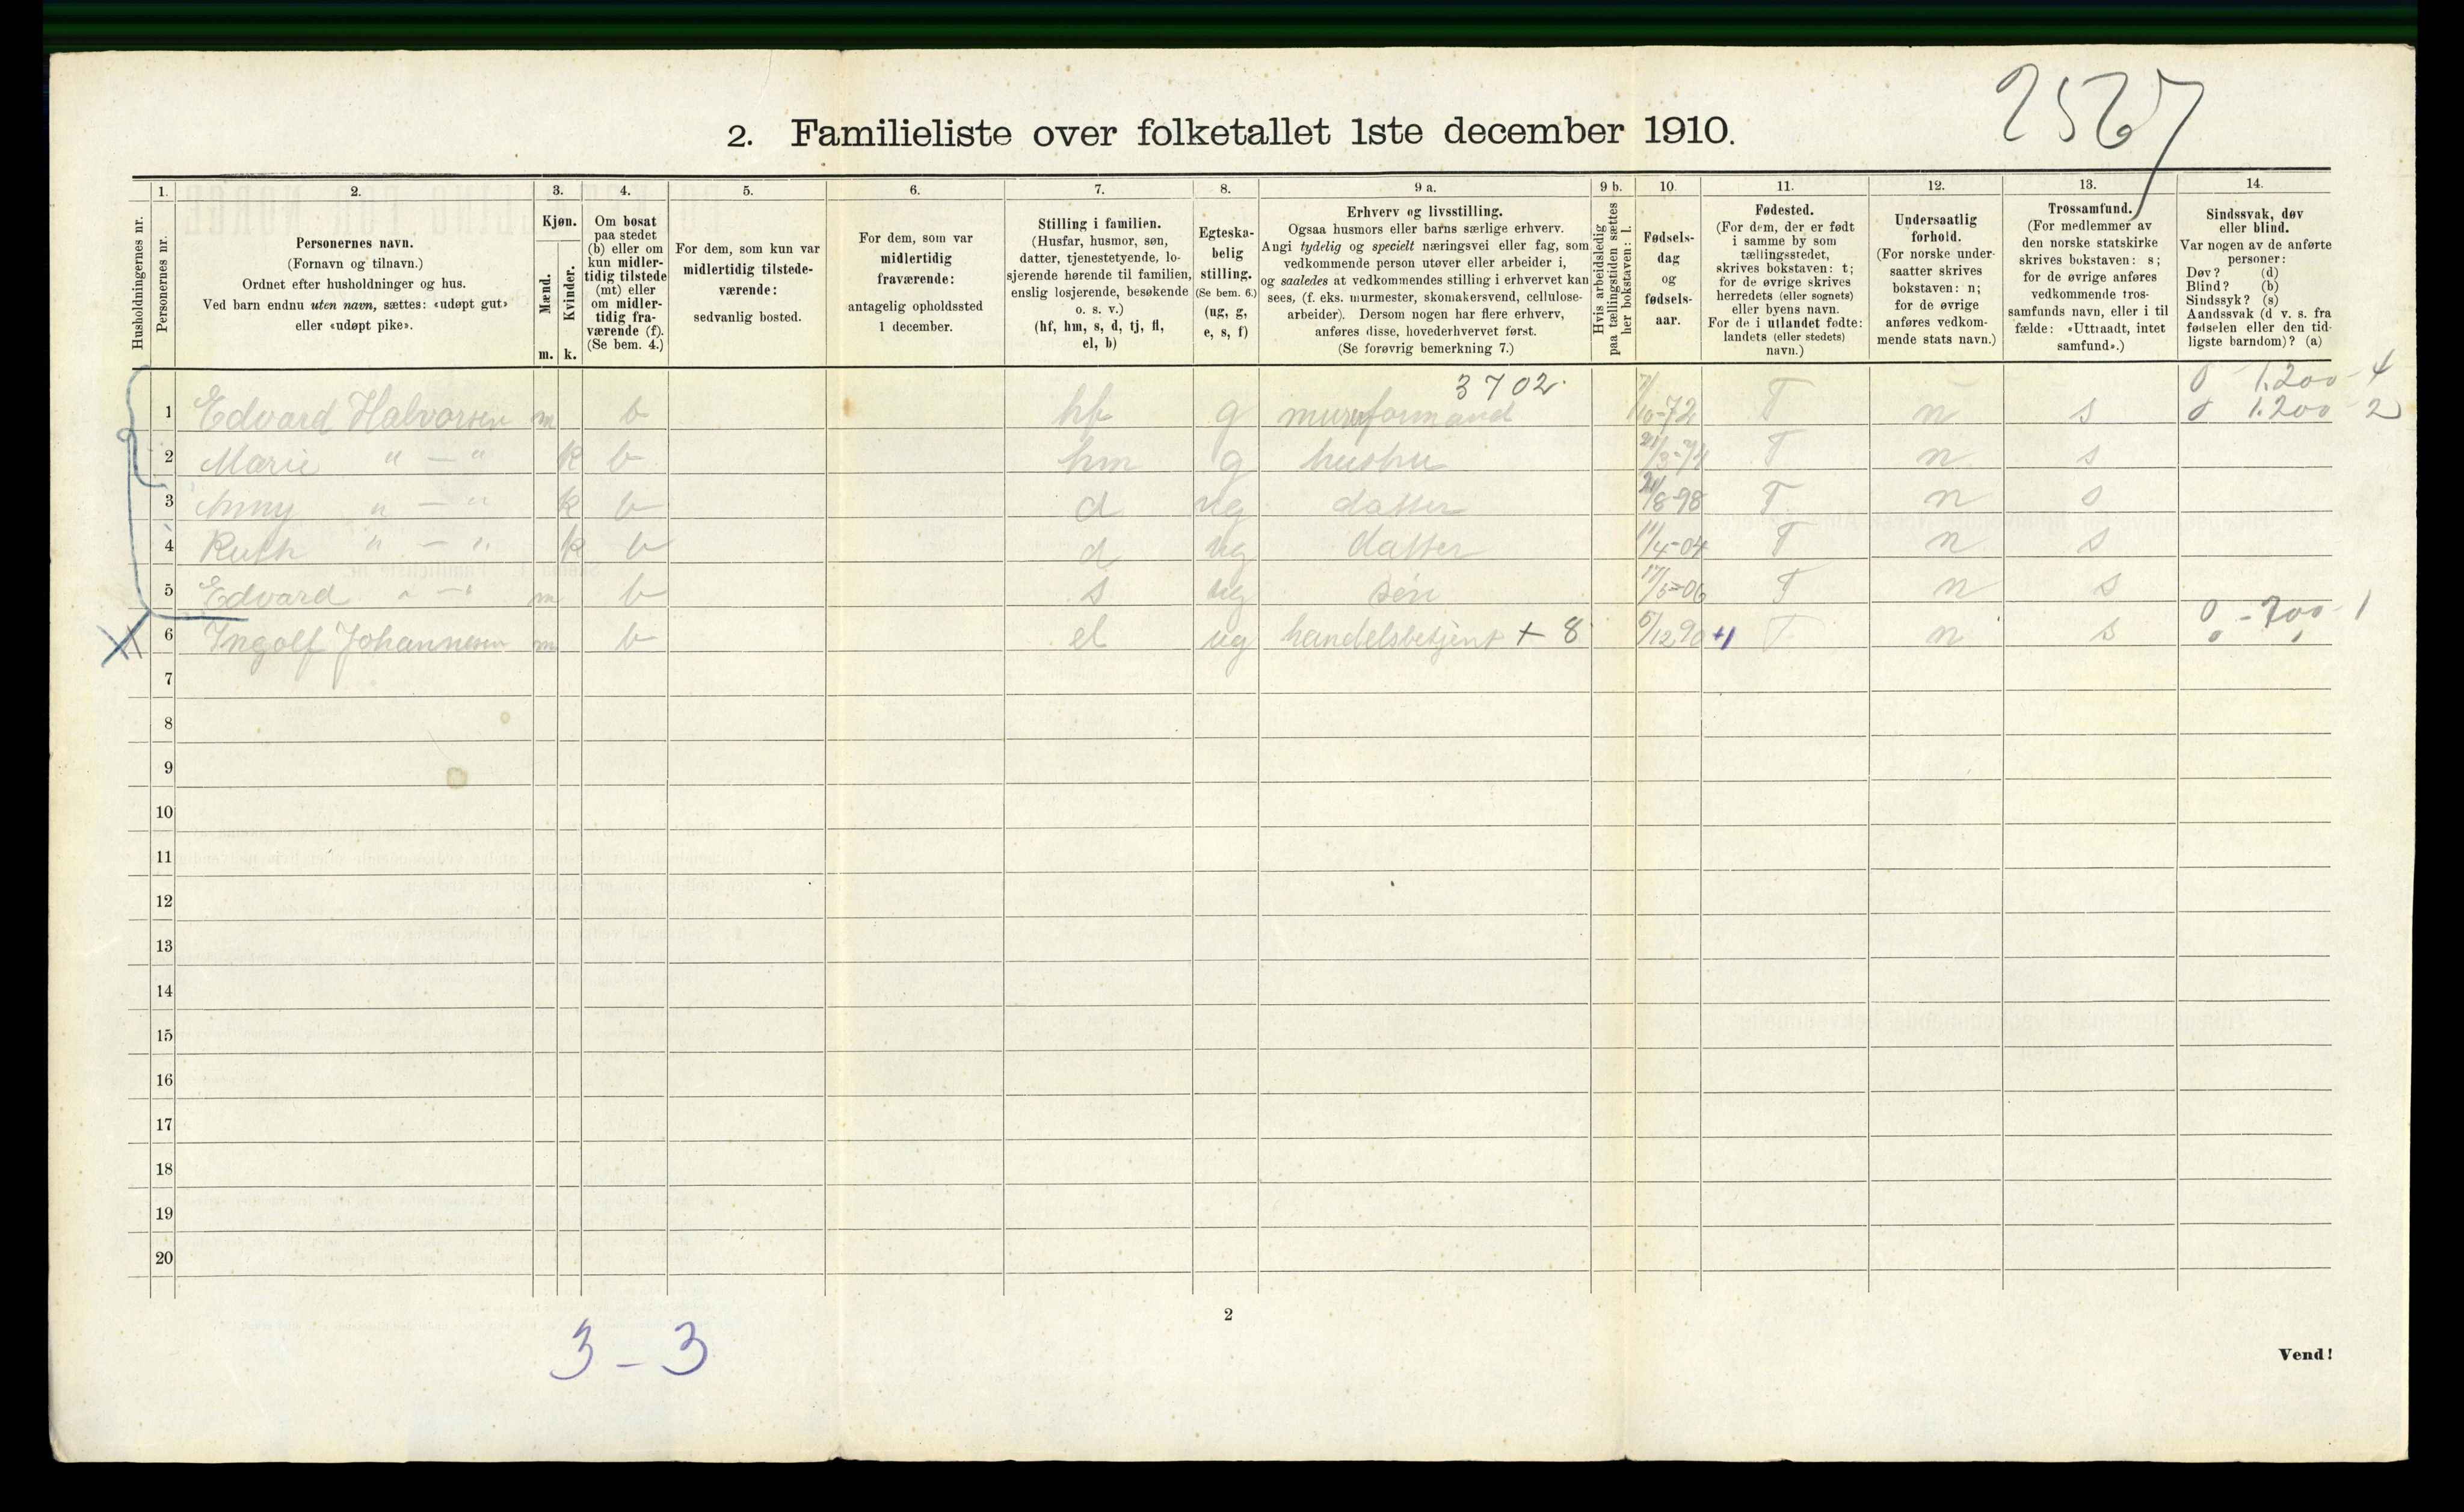 2567
2. Familieliste over folketallet 1ste december 1910.
1. 2. 3. 4. 5. 6. 7. 8. 9 a. 9 b. 10. 11. 12. 13. 14.
Husholdningernes nr.
Personernes nr.
Personernes navn.
(Fornavn og tilnavn.)
Ordnet efter husholdninger og hus.
Ved barn endnu uten navn, sættes: «udøpt gut»
eller «udøpt pike».
Kjøn.
Mænd.
Kvinder.
m. k.
Om bosat
paa stedet
(b) eller om
kun midler-
tidig tilstede
(mt) eller
om midler-
tidig fra-
værende (f).
(Se bem. 4.)
For dem, som kun var
midlertidig tilstede-
værende:
sedvanlig bosted.
For dem, som var
midlertidig
fraværende:
antagelig opholdssted
1 december.
Stilling i familien.
(Husfar, husmor, søn,
datter, tjenestetyende, lo-
sjerende hørende til familien,
enslig losjerende, besøkende
o. s. v.)
(hf, hm, s, d, tj, fl,
el, b)
Egteska-
belig
stilling.
(Se bem. 6.)
(ug, g,
e, s, f)
Erhverv og livsstilling.
Ogsaa husmors eller barns særlige erhverv.
Angi tydelig og specielt næringsvei eller fag, som
vedkommende person utøver eller arbeider i,
og saaledes at vedkommendes stilling i erhvervet kan
sees, (f. eks. murmester, skomakersvend, cellulose-
arbeider). Dersom nogen har flere erhverv,
anføres disse, hovederhvervet først.
(Se forøvrig bemerkning 7.)
Hvis arbeidsledig
paa tællingstiden sættes
her bokstaven: l.
Fødsels-
dag
og
fødsels-
aar.
Fødested.
(For dem, der er født
i samme by som
tællingsstedet,
skrives bokstaven: t;
for de øvrige skrives
herredets (eller sognets)
eller byens navn.
For de i utlandet fødte:
landets (eller stedets)
navn.)
Undersaatlig
forhold.
(For norske under-
saatter skrives
bokstaven: n;
for de øvrige
anføres vedkom-
mende stats navn.)
Trossamfund.
(For medlemmer av
den norske statskirke
skrives bokstaven: s;
for de øvrige anføres
vedkommende tros-
samfunds navn, eller i til-
fælde: «Uttraadt, intet
samfund».)
Sindssvak, døv
eller blind.
Var nogen av de anførte
personer:
Døv? (d)
Blind? (b)
Sindssyk? (s)
Aandssvak (d. v. s. fra
fødselen eller den tid-
ligste barndom)? (a)
3702. 0 1.200 - 4
1 Edvard Halvorsen m b hf g murerformand 7/10-72 T n s 0 1.200 - 2
2 Marie " — " k b hm g hustru 21/3-74 T n s
3 Anny " — " k b d ug datter 21/8-98 T n s
4 Ruth " — " k b d ug datter 11/4-04 T n s
5 Edvard " — " m b s ug søn 17/5-06 T n s
0 - 700 - 1
X 6 Ingolf Johannesen m b el ug handelsbetjent + 8 5/12 90 +1 T n s
7
8
9
10
11
12
13
14
15
16
17
18
19
20
2
3 - 3
Vend!